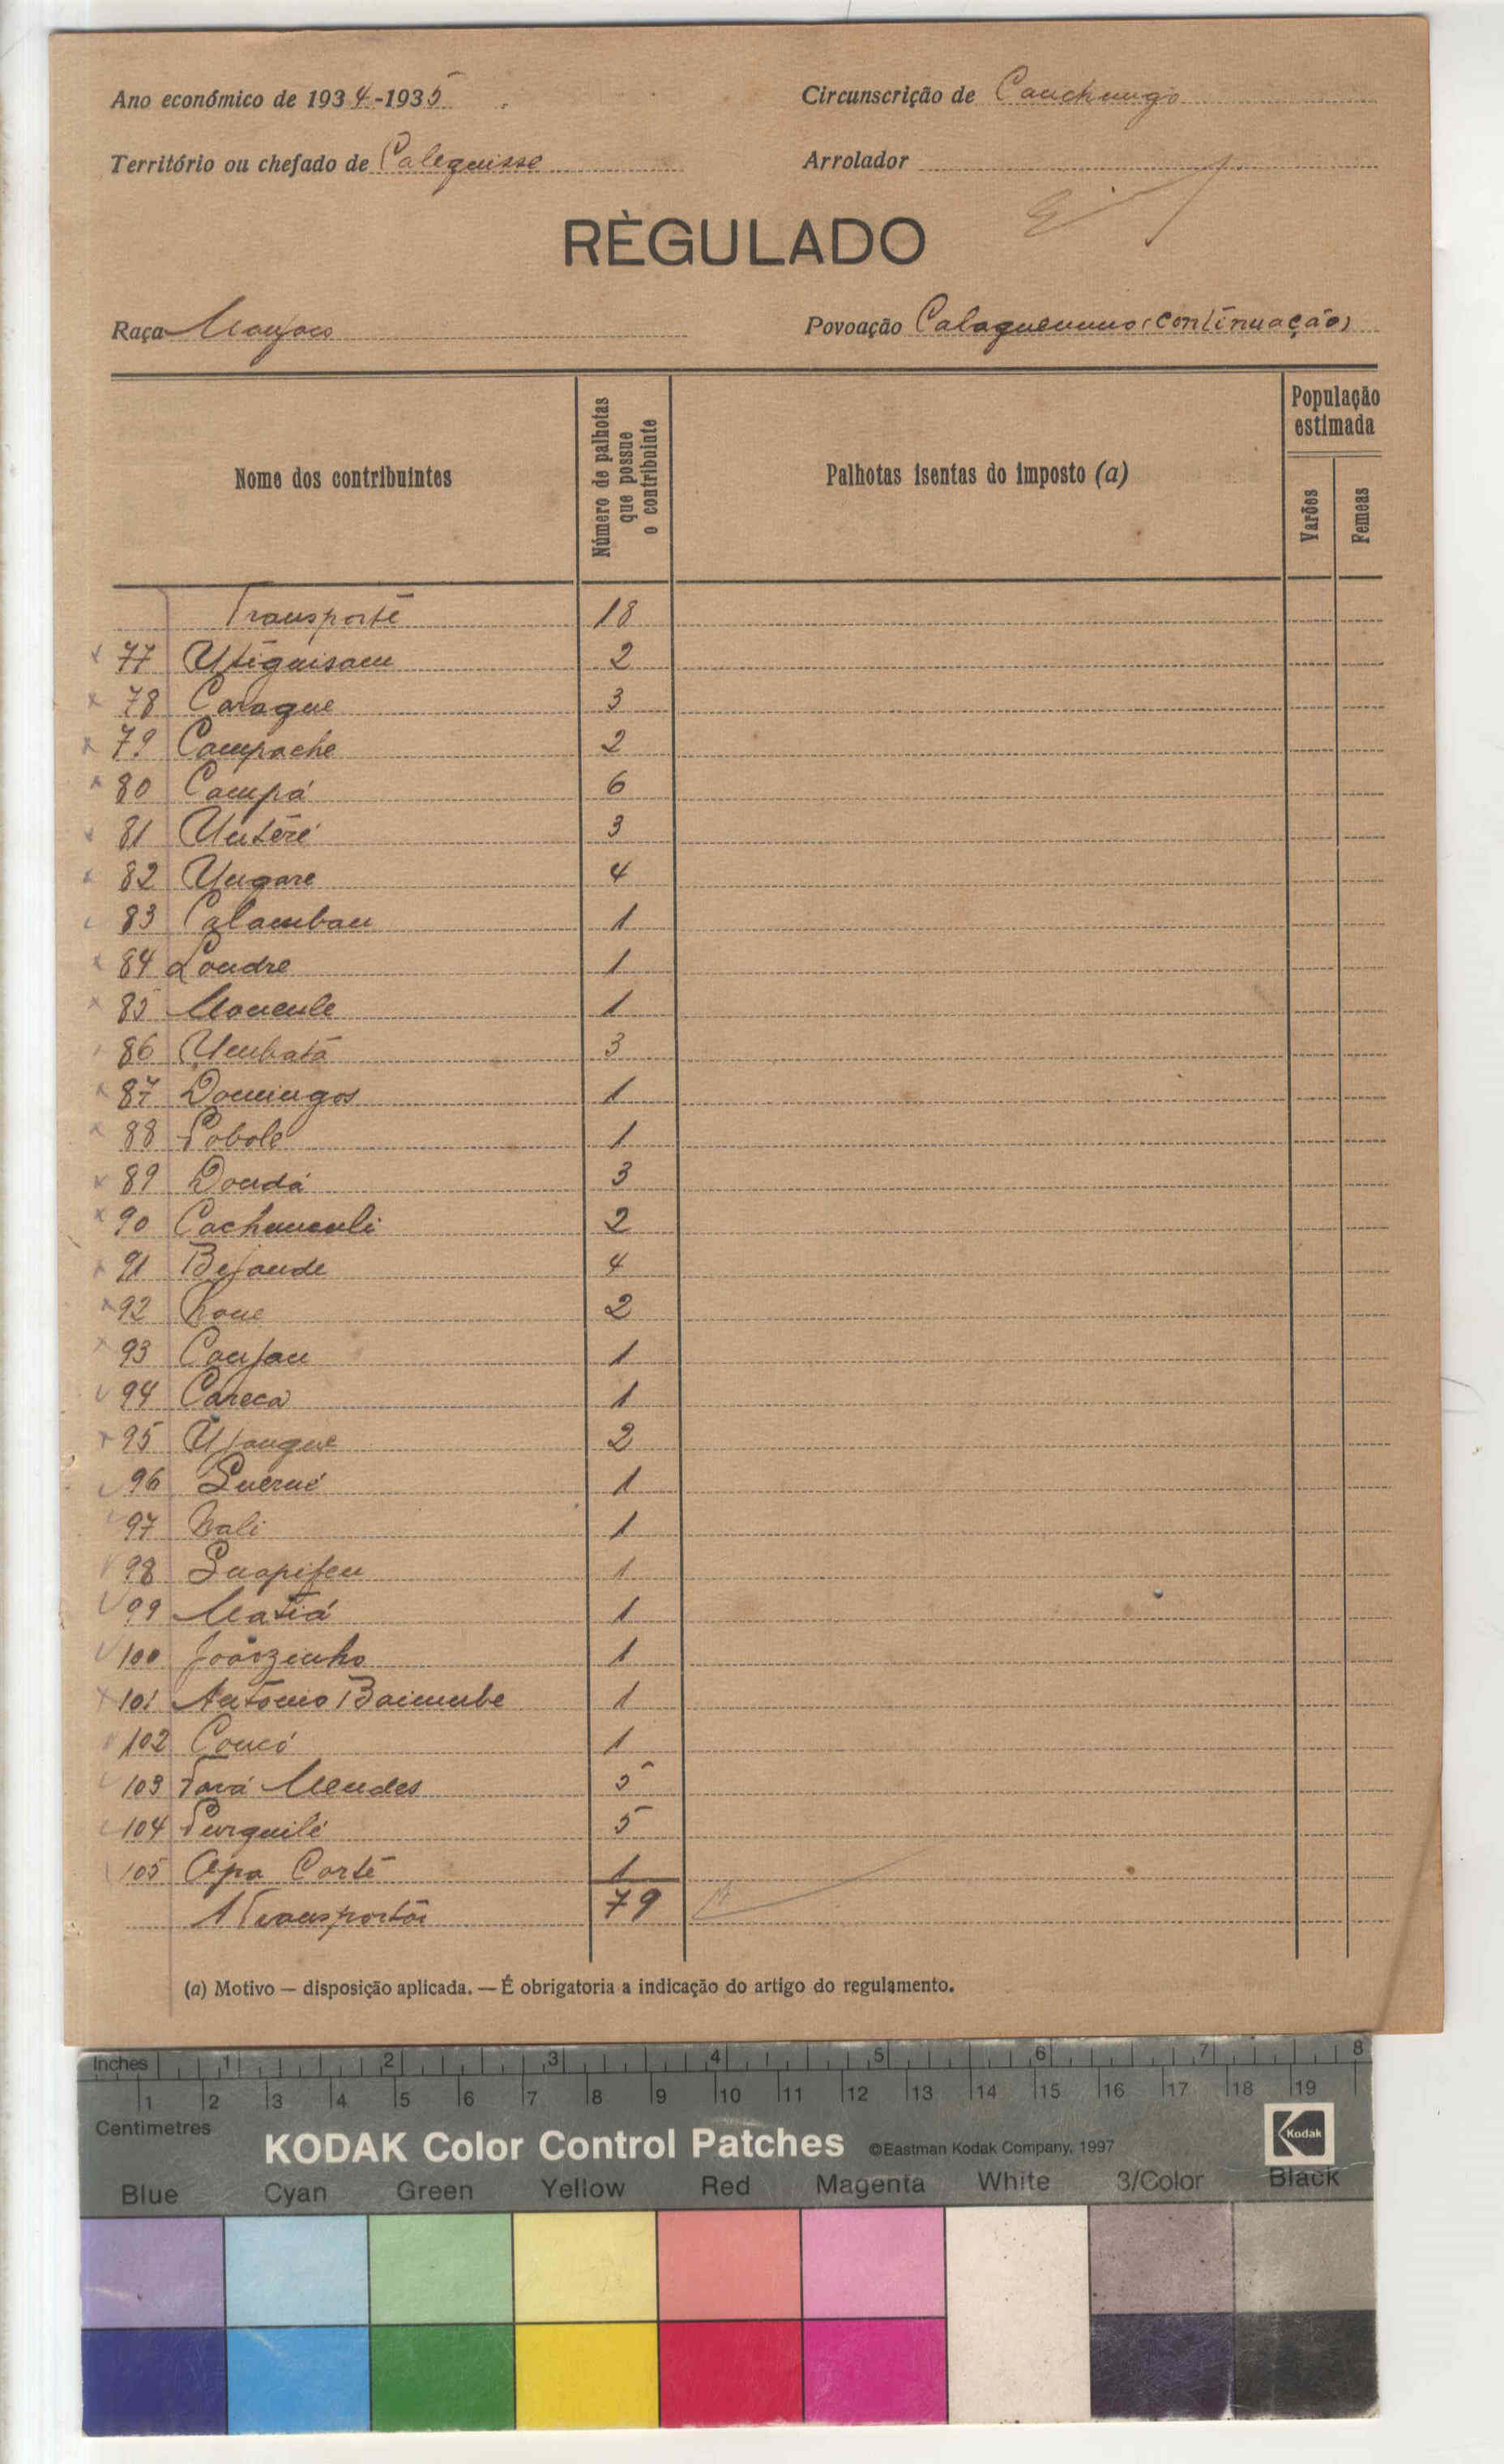 Ano económico de 1934-1935
Circunscrição de Canchungo
Território ou chefado de Calequisse
Arrolador
RÈGULADO
Raça Manjaco
Povoação Calaquenuno (continuação)
Nome dos contribuintes
Número de palhotas que possue o contribuinte
Palhotas isentas do imposto (a)
População estimada
Varões
Femeas
Transporte 18
77 Utiguisam 2
78 Caraque 3
79 Campache 2
80 Campá 6
81 Untéré 3
82 Ungare 4
83 Calamban 1
84 Londre 1
85 Mancule 1
86 Umbatá 3
87 Domingos 1
88 Pobole 1
89 Dondá 3
90 2
91 Bejande 4
92 2
93 Canjan 1
94 Careca 1
95 Ujangue 2
96 1
97 Nali 1
98 1
99 Matiá 1
100 Joãozinho 1
101 António Baimumbe 1
102 Concó 1
103 Tará Mendes 5
104 Purguilé 5
105 Apa Corté 1
A Transportar 79
(a) Motivo — disposição aplicada. — É obrigatoria a indicação do artigo do regulamento.
Inches 1 2 3 4 5 6 7 8
1 2 3 4 5 6 7 8 9 10 11 12 13 14 15 16 17 18 19
Centimetres
KODAK Color Control Patches ©Eastman Kodak Company, 1997 Kodak
Blue Cyan Green Yellow Red Magenta White 3/Color Black